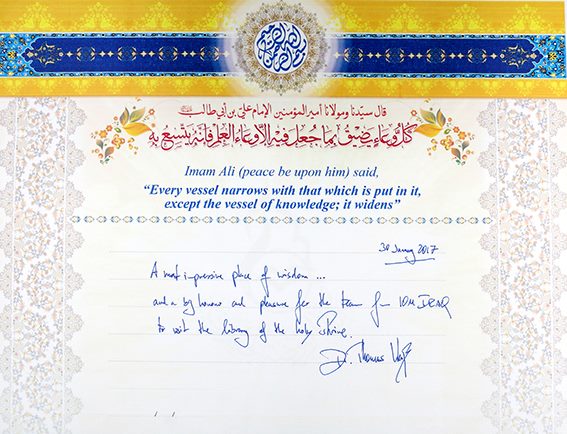 بسم الله الرحمن الرحيم
قال سيدنا ومولانا أمير المؤمنين الإمام علي بن أبي طالب
كُلُّ وِعَاءٍ يَضِيقُ بِمَا جُعِلَ فِيهِ إِلَّا وِعَاءَ الْعِلْمِ فَإِنَّهُ يَتَّسِعُ بِهِ
Imam Ali (peace be upon him) said,
“Every vessel narrows with that which is put in it,
except the vessel of knowledge; it widens”
30 January 2017
A most impressive place of wisdom ...
and a big honour and pleasure for the team from IOM IRAQ
to visit the library of the holy shrine.
Dr. Thomas
/ /